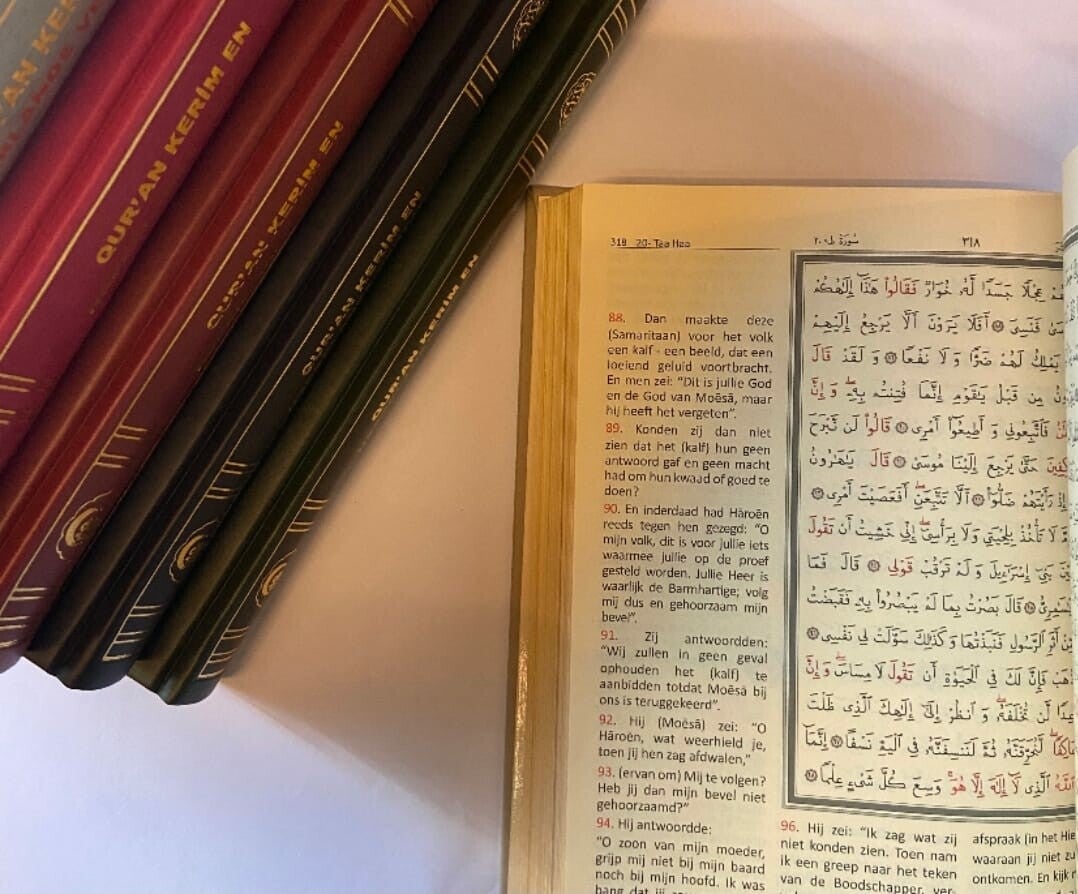 QUR'AN KERİM EN
QUR'AN KERİM EN
QUR'AN KERİM EN
QUR'AN KERİM EN
318 20- Taa Haa
سُورَةُ طه ٢٠
٣١٨
88. Dan maakte deze
(Samaritaan) voor het volk
een kalf - een beeld, dat een
loeiend geluid voortbracht.
En men zei: "Dit is jullie God
en de God van Moēsā, maar
hij heeft het vergeten".
89. Konden zij dan niet
zien dat het (kalf) hun geen
antwoord gaf en geen macht
had om hun kwaad of goed te
doen?
90. En inderdaad had Hāroēn
reeds tegen hen gezegd: "O
mijn volk, dit is voor jullie iets
waarmee jullie op de proef
gesteld worden. Jullie Heer is
waarlijk de Barmhartige; volg
mij dus en gehoorzaam mijn
bevel".
91. Zij antwoordden:
"Wij zullen in geen geval
ophouden het (kalf) te
aanbidden totdat Moēsā bij
ons is teruggekeerd".
92. Hij (Moēsā) zei: "O
Hāroēn, wat weerhield je,
toen jij hen zag afdwalen,"
93. (ervan om) Mij te volgen?
Heb jij dan mijn bevel niet
gehoorzaamd?"
94. Hij antwoordde:
"O zoon van mijn moeder,
grijp mij niet bij mijn baard
noch bij mijn hoofd. Ik was
bang dat jij
عِجْلًا جَسَدًا لَهُ خُوَارٌ فَقَالُوا هٰذَٓا اِلٰهُكُمْ
فَنَسِيَ ۝ اَفَلَا يَرَوْنَ اَلَّا يَرْجِعُ اِلَيْهِمْ
يَمْلِكُ لَهُمْ ضَرًّا وَ لَا نَفْعًا ۝ وَ لَقَدْ قَالَ
مِنْ قَبْلُ يَا قَوْمِ اِنَّمَا فُتِنْتُمْ بِهِ وَ اِنَّ
فَاتَّبِعُونِي وَ اَطِيعُٓوا اَمْرِي ۝ قَالُوا لَنْ نَبْرَحَ
حَتّٰى يَرْجِعَ اِلَيْنَا مُوسٰى ۝ قَالَ يَا هٰرُونُ
اِذْ رَاَيْتَهُمْ ضَلُّٓوا ۝ اَلَّا تَتَّبِعَنِ اَفَعَصَيْتَ اَمْرِي ۝
لَا تَأْخُذْ بِلِحْيَتِي وَلَا بِرَأْسِي اِنِّي خَشِيتُ اَنْ تَقُولَ
بَنِٓي اِسْرَٓائِيلَ وَ لَمْ تَرْقُبْ قَوْلِي ۝ قَالَ فَمَا
۝ قَالَ بَصُرْتُ بِمَا لَمْ يَبْصُرُوا بِهِ فَقَبَضْتُ
مِنْ اَثَرِ الرَّسُولِ فَنَبَذْتُهَا وَ كَذٰلِكَ سَوَّلَتْ لِي نَفْسِي ۝
فَاِنَّ لَكَ فِي الْحَيٰوةِ اَنْ تَقُولَ لَا مِسَاسَ وَ اِنَّ
لَنْ تُخْلَفَهُ وَ انْظُرْ اِلٰٓى اِلٰهِكَ الَّذِي ظَلْتَ
لَنُحَرِّقَنَّهُ ثُمَّ لَنَنْسِفَنَّهُ فِي الْيَمِّ نَسْفًا ۝ اِنَّمَٓا
اللّٰهُ الَّذِي لَٓا اِلٰهَ اِلَّا هُوَ وَسِعَ كُلَّ شَيْءٍ عِلْمًا ۝
96. Hij zei: "Ik zag wat zij
niet konden zien. Toen nam
ik een greep naar het teken
van de Boodschapper, ver
afspraak (in het Hie
waaraan jij niet zu
ontkomen. En kijk